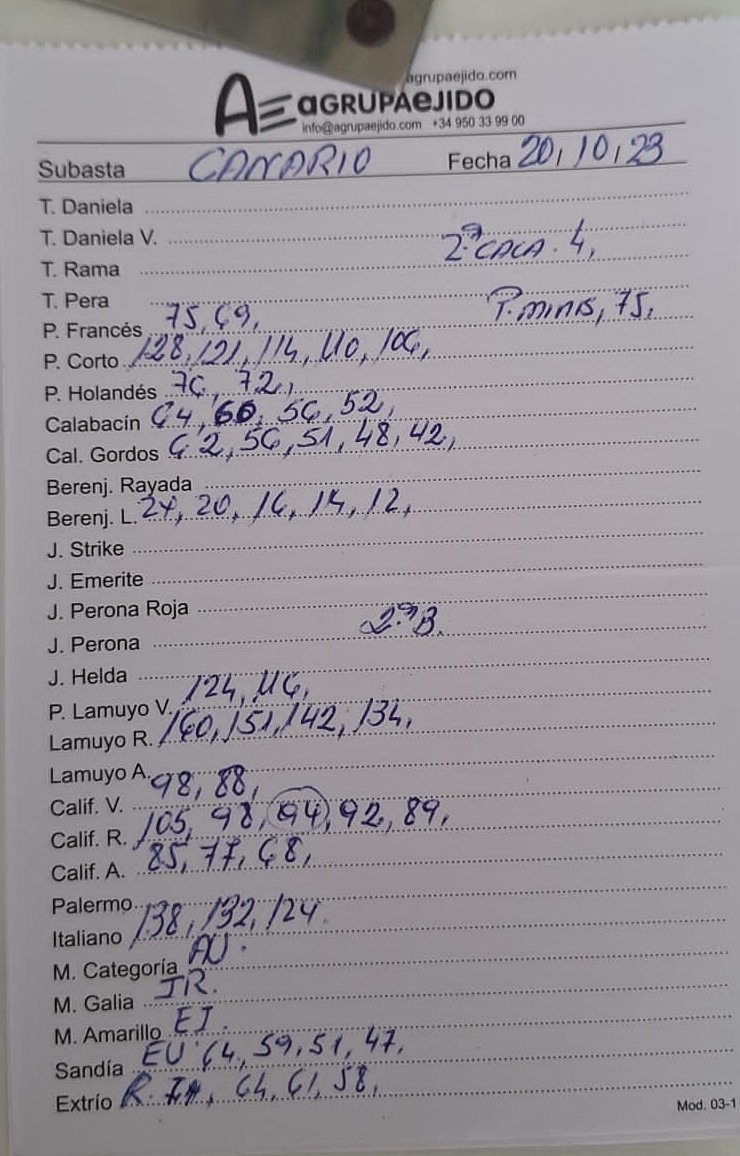 agrupaejido.com
AE aGRUPAeJIDO
info@agrupaejido.com +34 950 33 99 00
Subasta CANARIO Fecha 20/10/23
T. Daniela
T. Daniela V.
T. Rama 2ª CACA. 4,
T. Pera
P. Francés 75, 69, P. minis, 75,
P. Corto 128, 121, 114, 110, 106,
P. Holandés 76, 72,
Calabacín 64, 60, 56, 52,
Cal. Gordos 62, 56, 51, 48, 42,
Berenj. Rayada
Berenj. L. 24, 20, 16, 14, 12,
J. Strike
J. Emerite
J. Perona Roja
J. Perona 2ª B.
J. Helda
P. Lamuyo V. 124, 116,
Lamuyo R. 160, 151, 142, 134,
Lamuyo A.
Calif. V. 98, 88,
Calif. R. 105, 98, 94, 92, 89,
Calif. A. 85, 77, 68,
Palermo
Italiano 138, 132, 124.
M. Categoría AU.
M. Galia JR.
M. Amarillo EJ.
Sandía EU 64, 59, 51, 47,
Extrío R. 64, 61, 58,
Mod. 03-1